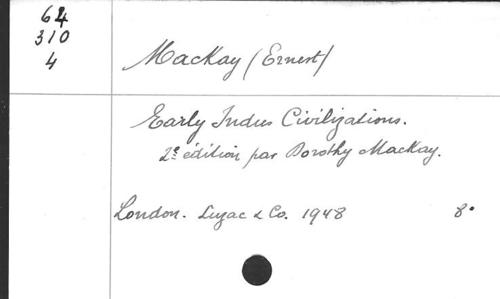 64
310
4
Mackay (Ernest)
Early Indus Civilizations.
2e édition par Dorothy Mackay.
London. Luzac & Co. 1948 8°